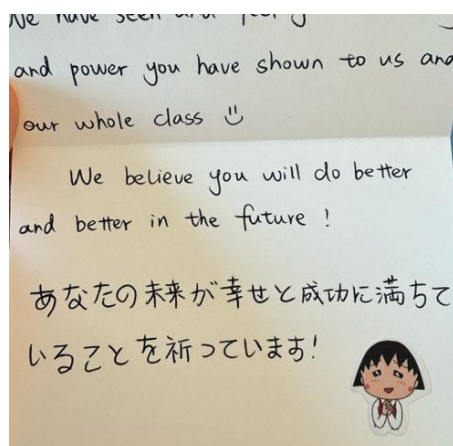 We have seen and feel y
and power you have shown to us and
our whole class
We believe you will do better
and better in the future !
あなたの未来が幸せと成功に満ちて
いることを祈っています!